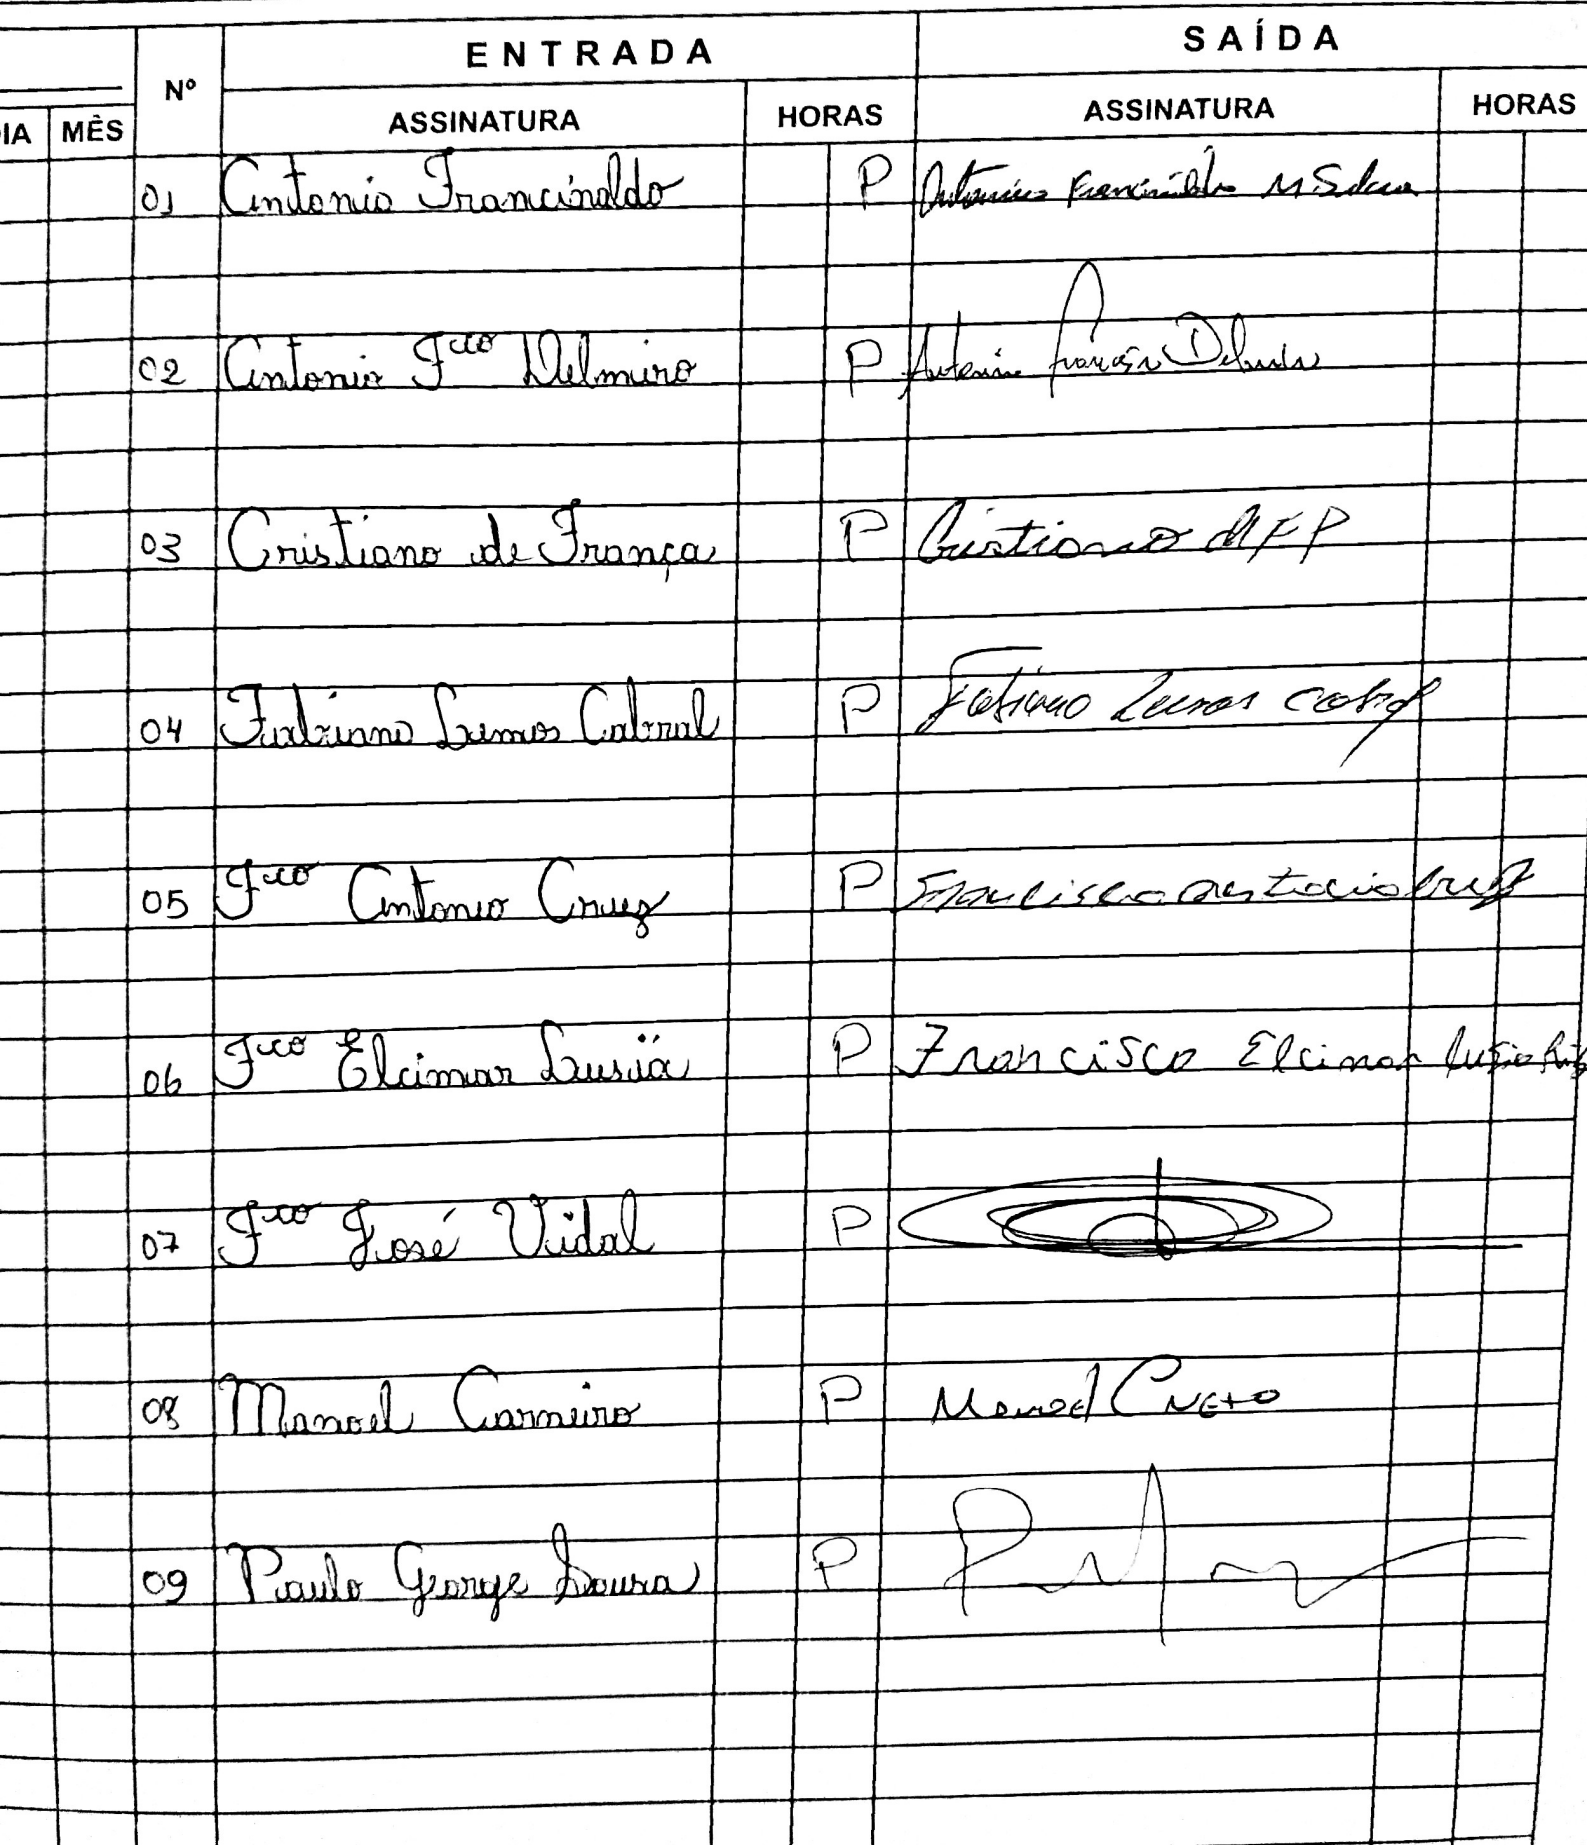 ENTRADA SAÍDA
Nº
ASSINATURA HORAS ASSINATURA HORAS
IA MÊS
01 Antonio Francinaldo P Antonio Francinaldo M
02 Antonio Fco Delmiro P Antonio
03 Cristiano de França P Cristiano
04 Fabriano Lemos Cabral P Fabiano Lemos Cabral
05 Fco Antonio Cruz P Francisco Cruz
06 Fco Elcimar P Francisco Elcimar
07 Fco José Vidal P
08 Manoel Carneiro P Manoel
09 Paulo George Sousa P